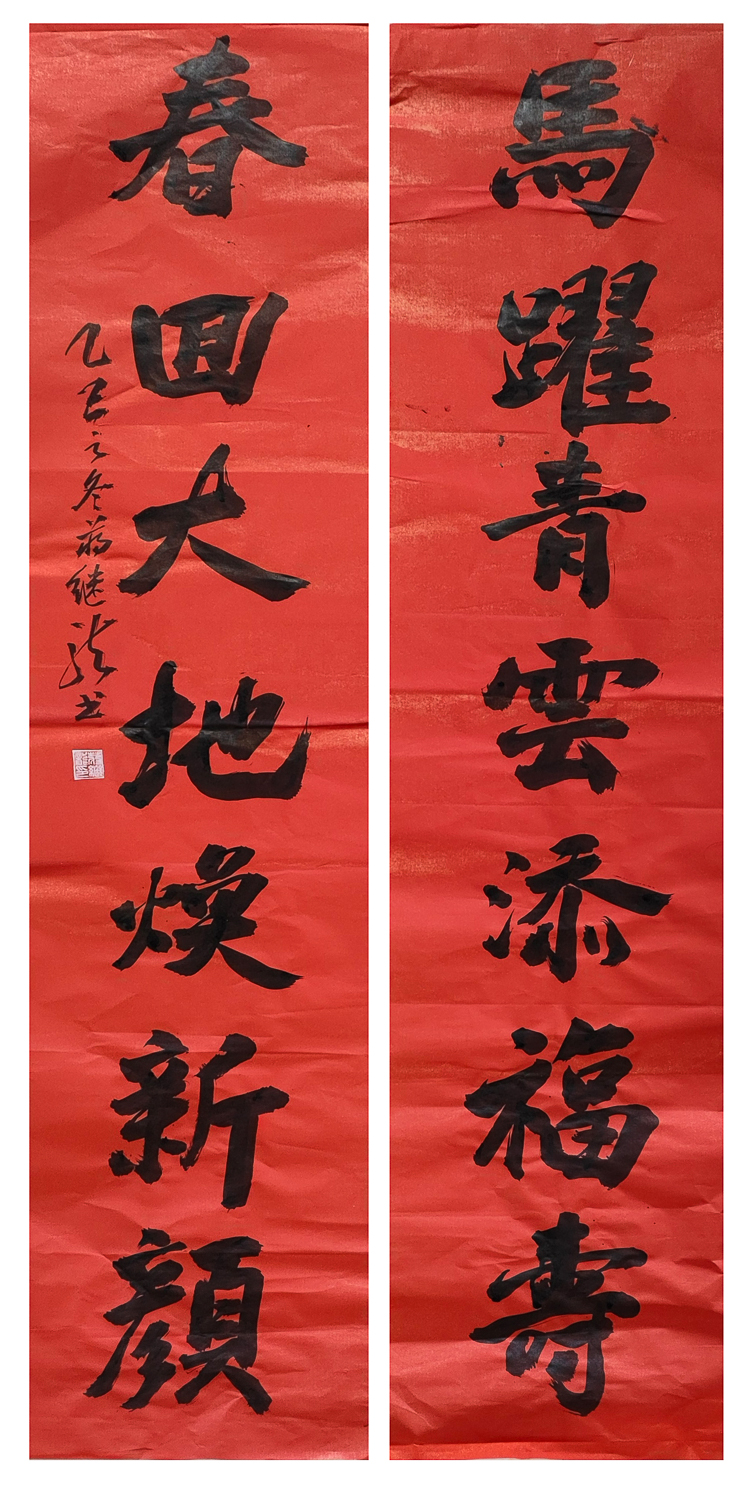 馬躍青雲添福壽
春回大地煥新顔
乙巳之冬蒋继龙书